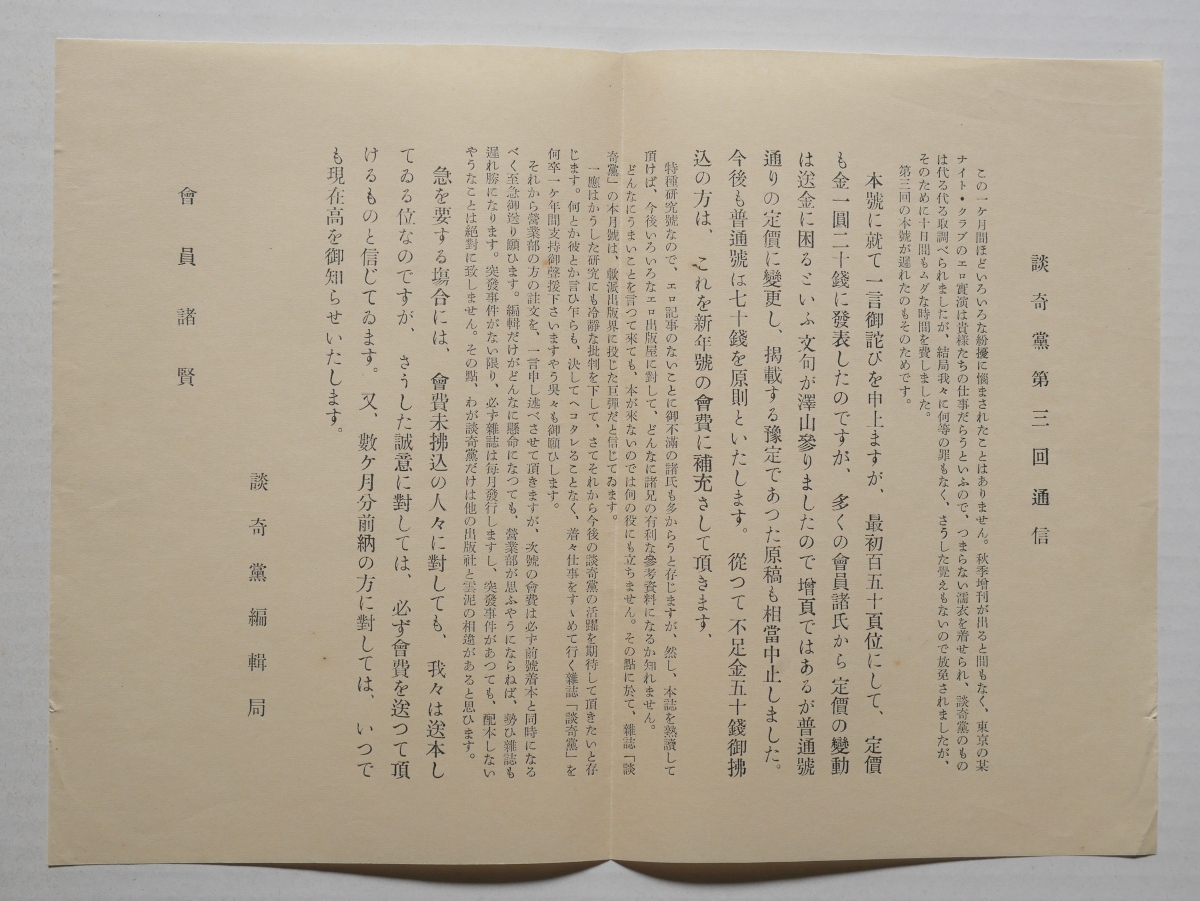 談奇黨第三回通信
この一ケ月間ほどいろいろな紛擾に惱まされたことはありません。秋季增刊が出ると間もなく、東京の某
ナイト・クラブのエロ實演は貴樣たちの仕事だらうといふので、つまらない濡衣を着せられ、談奇黨のもの
は代る代る取調べられましたが、結局我々に何等の罪もなく、さうした覺えもないので放免されましたが、
そのために十日間もムダな時間を費しました。
第三回の本號が遲れたのもそのためです。
本號に就て一言御詫びを申上ますが、最初百五十頁位にして、定價
も金一圓二十錢に發表したのですが、多くの會員諸氏から定價の變動
は送金に困るといふ文句が澤山參りましたので增頁ではあるが普通號
通りの定價に變更し、揭載する豫定であつた原稿も相當中止しました。
今後も普通號は七十錢を原則といたします。從つて不足金五十錢御拂
込の方は、これを新年號の會費に補充さして頂きます、
特種硏究號なので、エロ記事のないことに御不滿の諸氏も多からうと存じますが、然し、本誌を熟讀して
頂けば、今後いろいろなエロ出版屋に對して、どんなに諸兄の有利な參考資料になるか知れません。
どんなにうまいことを言つて來ても、本が來ないのでは何の役にも立ちません。その點に於て、雜誌「談
奇黨」の本月號は、軟派出版界に投じた巨彈だと信じてゐます。
一應はかうした硏究にも冷靜な批判を下して、さてそれから今後の談奇黨の活躍を期待して頂きたいと存
じます。何とか彼とか言ひ乍らも、決してヘコタレることなく、着々仕事をすゝめて行く雜誌「談奇黨」を
何卒一ケ年間支持御聲援下さいますやう吳々も御願ひします。
それから營業部の方の註文を、一言申し述べさせて頂きますが、次號の會費は必ず前號着本と同時になる
べく至急御送り願ひます。編輯だけがどんなに懸命になつても、營業部が思ふやうにならねば、勢ひ雜誌も
遲れ勝になります。突發事件がない限り、必ず雜誌は每月發行しますし、突發事件があつても、配本しない
やうなことは絕對に致しません。その點、わが談奇黨だけは他の出版社と雲泥の相違があると思ひます。
急を要する場合には、會費未拂込の人々に對しても、我々は送本し
てゐる位なのですが、さうした誠意に對しては、必ず會費を送つて頂
けるものと信じてゐます。又、數ケ月分前納の方に對しては、いつで
も現在高を御知らせいたします。
談奇黨編輯局
會員諸賢